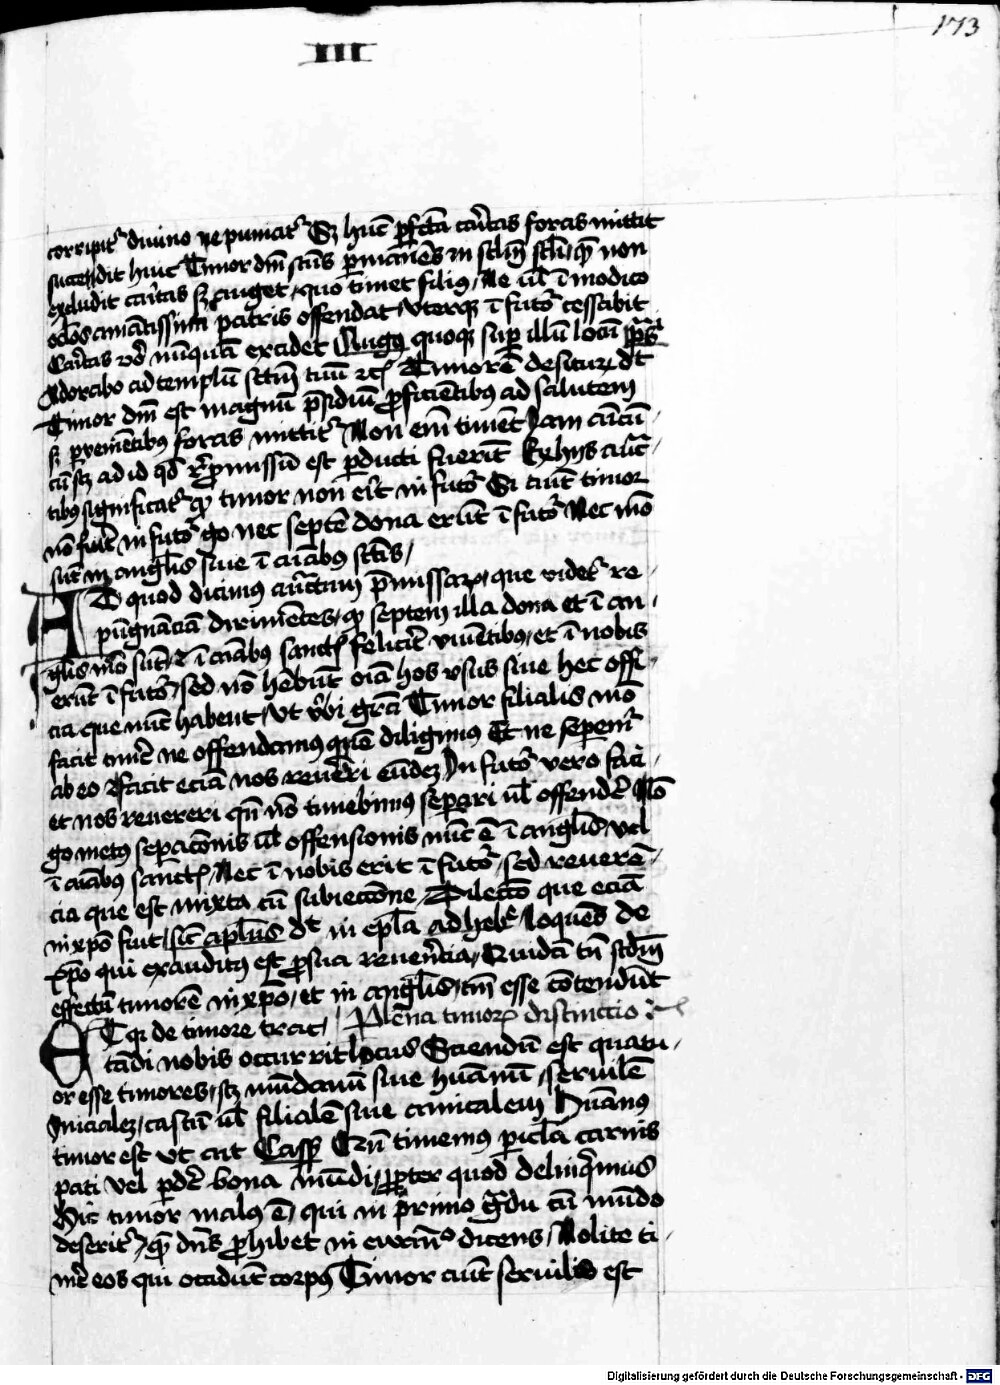 III
173
corripit᷑ divino ne puniat᷑ Sꝫ hu͞c ꝑfc͞ta ca͞ritas foras mittit
succedit huic Timor dn͞i sc͞us ꝑmane͞s in sc͞lm͞ sc͞li q͞ non
excludit ca͞ritas sꝫ auget quo timet filiꝰ Ne ul͞ i͞ modico
oc͞los ama͞tissimi patris offendat Uterqꝫ i͞ fut᷑o cessabit
Ca͞ritas vo͞ nu͞qua͞ excidet Augꝰ quoqꝫ suꝑ illu͞ locu͞ ps͞
Adorabo ad templu͞ sc͞tm͞ tuu͞ ⁊c͞ Timore͞ desc͞ d͞t
Timor dn͞i est magnu͞ p͞sidiu͞ ꝓficie͞tibus ad salutem
sꝫ ꝑvenie͞tibus foras mittit᷑ Non em͞ time͞t Jam amicu͞
cu͞ scꝫ ad id qd͞ r͞promissu͞ est ꝑducti fueri͞t Ex hijs auc͞t
tibus significat᷑ qꝫ timor non eri͞t in fut᷑o Si aut͞ timor
no͞ fueri͞t in fut᷑o go nec septe͞ dona eru͞t i͞ fut᷑o Nec mo͞
su͞t in angl͞is sive i͞ ai͞abus sc͞tis
AD quod dicimus auc͞tatum p͞missarꝫ que videt᷑ re
pu͞gna͞cia͞ dirime͞tes qꝫ septem illa dona et i͞ an
gl͞is mo͞ su͞t ⁊ i͞ ai͞abus sanct͞ felicit͞ vive͞tibus et i͞ nobis
eru͞t i͞ fut᷑o sed no͞ hebu͞t oi͞a hos usus sive hec offi
cia que nu͞c habent Ut v͞bi gr͞a Timor filialis mo͞
facit time͞ ne offendamus que͞ diligimus Et ne sepem᷑
ab eo ⁊ facit ecia͞ nos reve͞ri eu͞dez In fut᷑o vero faci
et nos revereri qn͞ no͞ timebimus separi ul͞ offende͞ No͞
go metus sepaco͞nis ul͞ offensionis nu͞c e͞ i͞ angl͞is vel
i͞ ai͞abus sanct͞ Nec i͞ nobis erit i͞ fut᷑o sed revere͞
cia que est mixta cu͞ subiectio͞ne Dilecco͞ que ecia͞
in xp͞o fuit sic͞ apl͞us d͞t in epl͞a ad heb͞ loque͞s de
xp͞o qui exauditus est ꝓ sua reve͞ncia Quida͞ tn͞ scd͞m
effectu͞ timore͞ in xp͞o et in angl͞is tm͞ esse co͞tendu͞t
ET qꝫ de timore trac Ple͞na timorꝫ distinctio
ta͞di nobis occurrit locus Sciendu͞ est quatu
or esse timores scꝫ mu͞danu͞ sive hu͞anu͞ servile͞
Inicialeꝫ castu͞ ul͞ filiale͞ sive amicalem Hu͞anus
timor est ut ait Cass͞ Cu͞ timemus pericl͞a carnis
pati vel ꝑde͞ bona mu͞di ꝓpter quod delinq͞imus
Hic timor malus e͞ qui in primo g͞du cu͞ mu͞do
deserit᷑ que͞ dn͞s ꝓhibet in evang͞o dicens Nolite ti
me͞ eos qui occidu͞t corpus Timor aut͞ servilis est
Digitalisierung gefördert durch die Deutsche Forschungsgemeinschaft - DFG